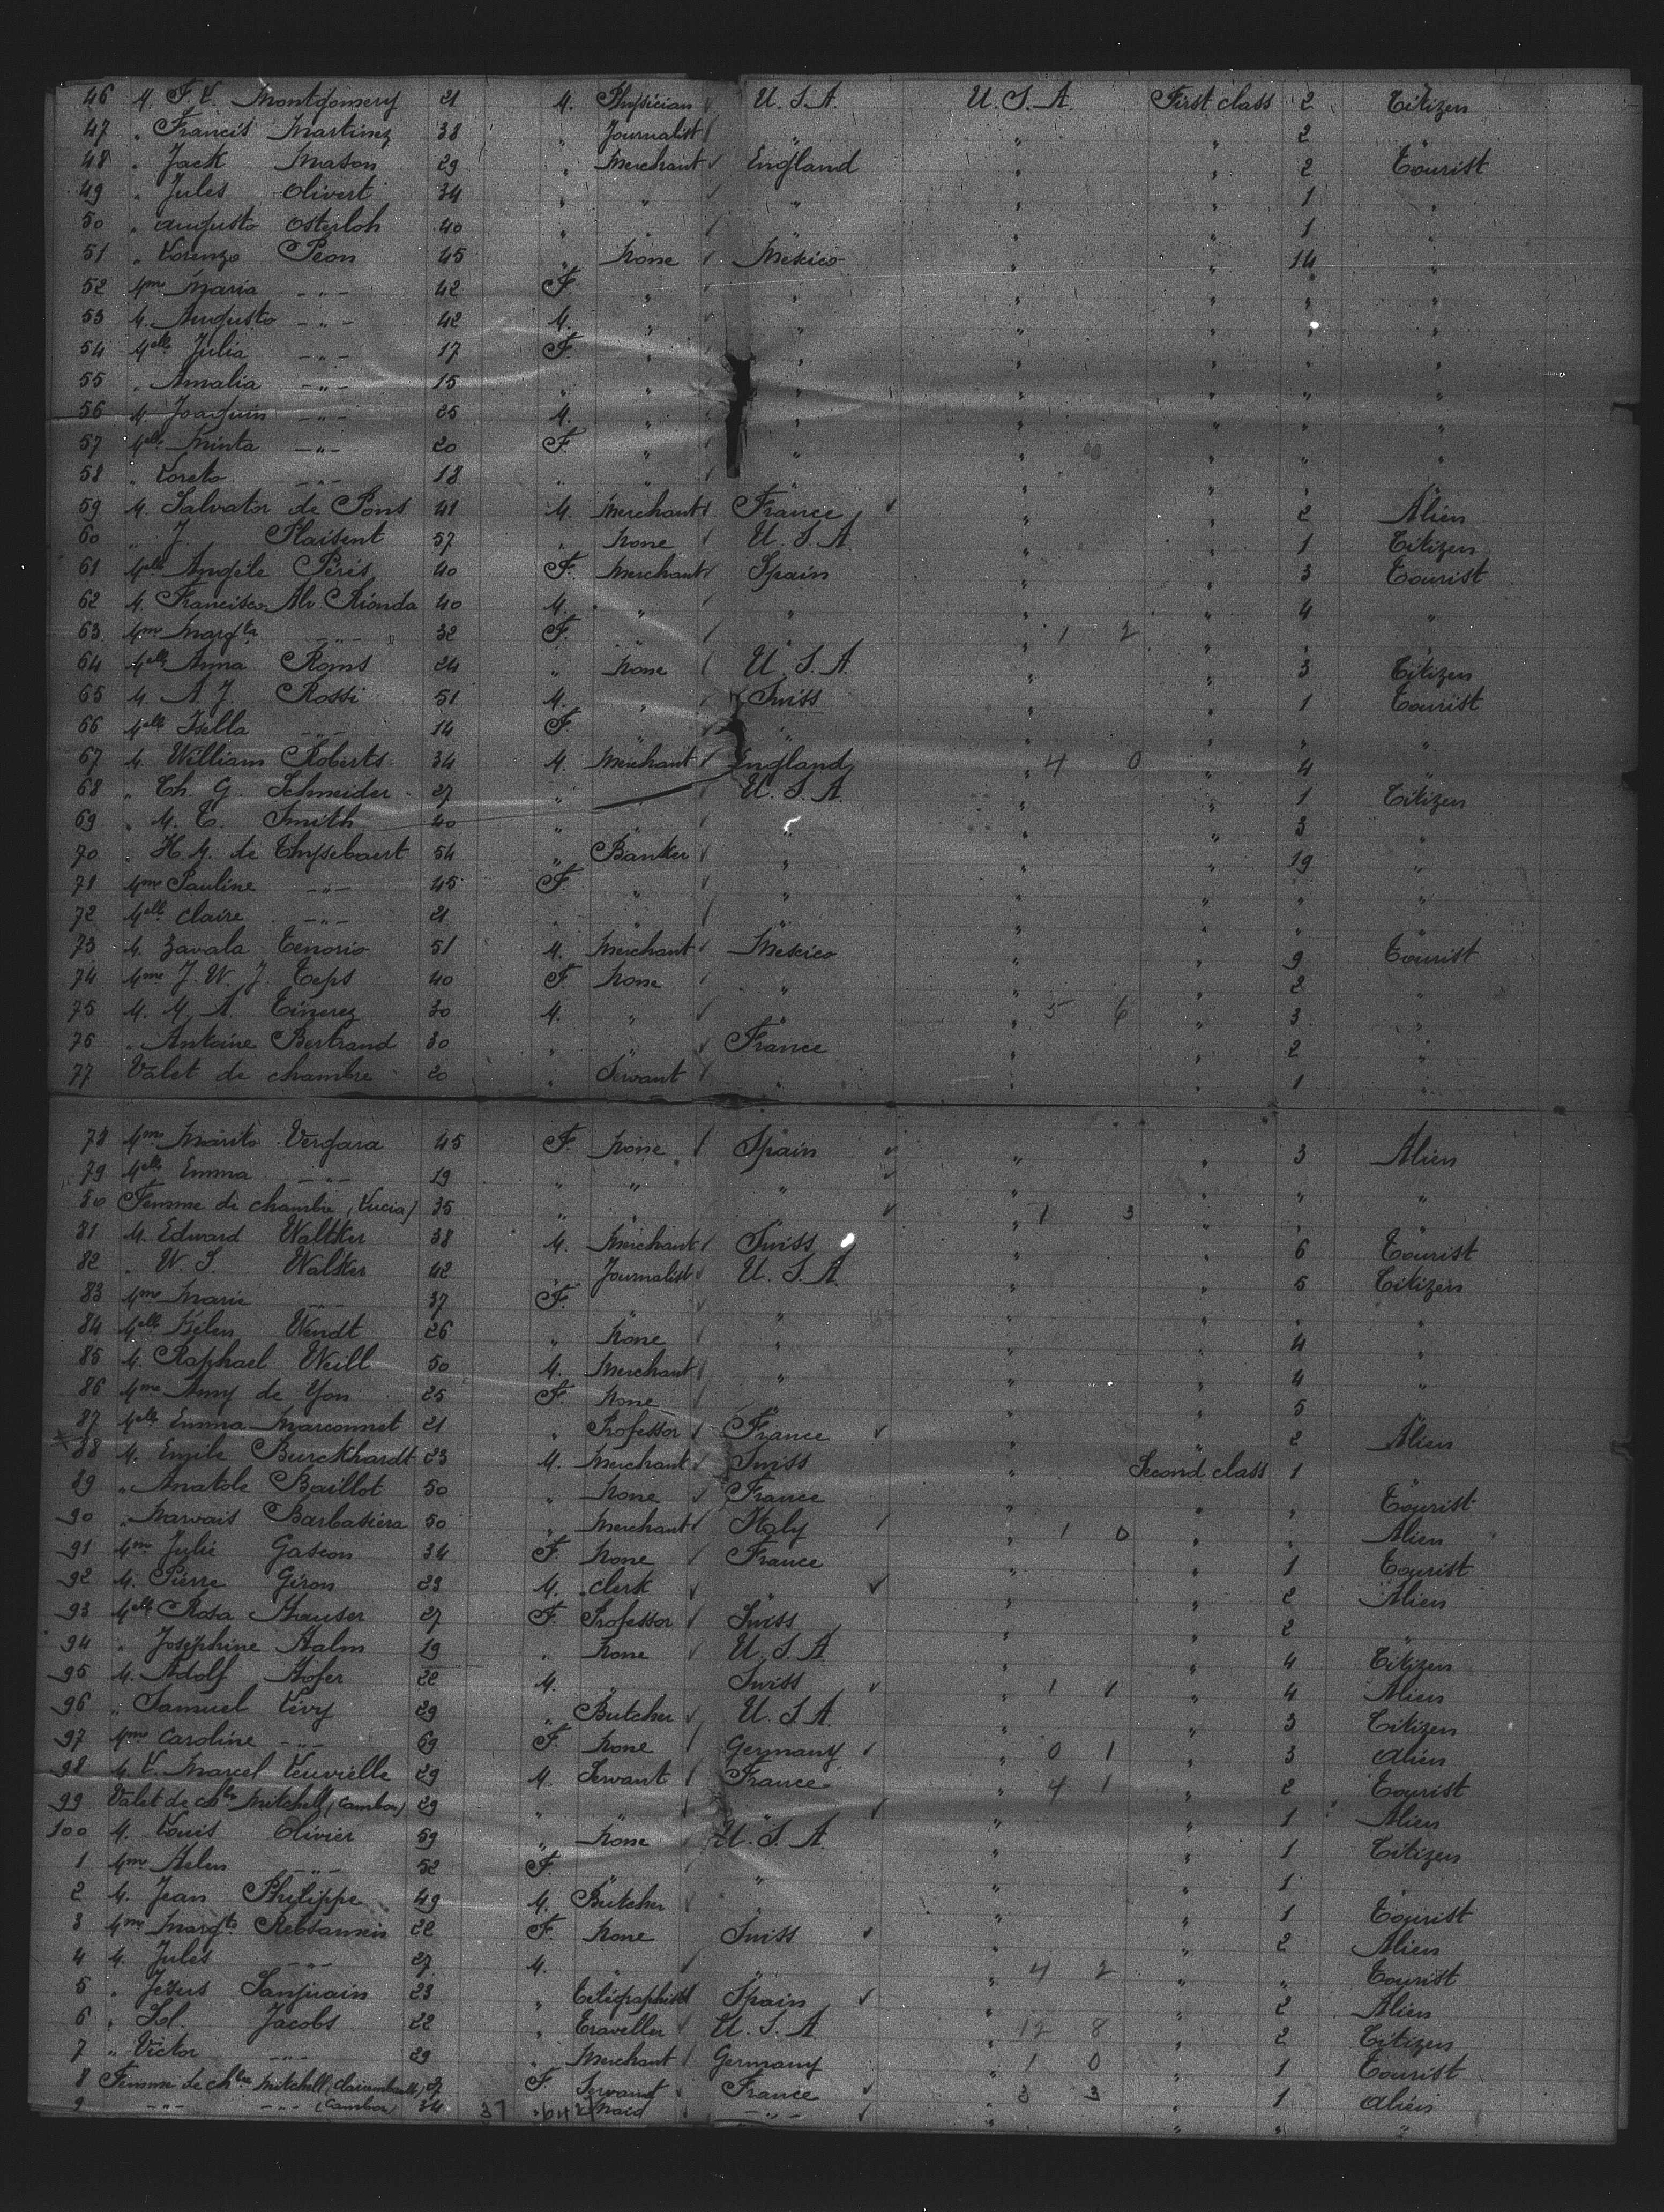 46 M. F. L. Montgomery 21 M. Physician U.S.A. U.S.A. First class 2 Citizen
47 " Francis Martinez 38 " Journalist " " " 2
48 " Jack Mason 29 " Merchant England " " 2 Tourist
49 " Jules Olivert 34 " " " " " 1 "
50 " Augusto Osterloh 40 " " " " " 1 "
51 " Lorenzo Peon 45 " None Mexico " " 14 "
52 Mme Maria -"- 42 F. " " " " " "
53 M. Augusto -"- 42 M. " " " " " "
54 Melle Julia -"- 17 F. " " " " " "
55 " Amalia -"- 15 " " " " " " "
56 M. Joaquin -"- 25 M. " " " " " "
57 Melle Minta -"- 20 F. " " " " " "
58 " Loreto -"- 18 " " " " " " "
59 M. Salvator de Pons 41 M. Merchant France " " 2 Alien
60 " J. Plaisent 57 " None U.S.A. " " 1 Citizen
61 Melle Angèle Péris 40 F. Merchant Spain " " 3 Tourist
62 M. Francisco Alv. Rionda 40 M. " " " " 4 "
63 Mme Margta -"- 32 F. " 1 2 " "
64 Melle Anna Roms 24 " None U.S.A. " " 3 Citizen
65 M. A. J. Rossi 51 M. " Swiss " " 1 Tourist
66 Melle Isella -"- 14 F. " " " " " "
67 M. William Roberts 34 M. Merchant England " 4 0 " 4 "
68 " Th. G. Schneider 27 " U.S.A. " " 1 Citizen
69 " M. T. Smith 40 " " " " 3 "
70 " H. M. de Thysebaert 54 " Banker " " " 19 "
71 Mme Pauline -"- 45 F. " " " " " "
72 Melle Claire -"- 21 " " " " " "
73 M. Zavala Tenorio 51 M. Merchant Mexico " " 9 Tourist
74 Mme J. W. J. Teps 40 F. None " " " 2 "
75 M. M. A. Tinerez 30 M. " " " 5 6 " 3 "
76 " Antoine Bertrand 30 " " France " " 2 "
77 Valet de chambre 20 " Servant " " " 1 "
78 Mme Marita Vergara 45 F. None Spain " " 3 Alien
79 Melle Emma -"- 19 " " " " " " "
80 Femme de chambre (Lucia) 35 " " " " 1 3 " " "
81 M. Edward Waltker 38 M. Merchant Swiss " " 6 Tourist
82 " W. S. Walker 42 " Journalist U.S.A. " " 5 Citizen
83 Mme Marie -"- 37 F. " " " " " "
84 Melle Helen Wendt 26 " None " " " 4 "
85 M. Raphael Weill 50 M. Merchant " " " 4 "
86 Mme Amy de Yon 25 F. None " " " 5
87 Melle Emma Marconnet 21 " Professor France " " 2 Alien
88 M. Emile Burckhardt 23 M. Merchant Swiss " Second class 1
89 " Anatole Baillot 50 " None France " " " Tourist
90 " Marvais Barbasiera 50 " Merchant Italy " 1 0 " " Alien
91 Mme Julie Gascon 34 F. None France " " 1 Tourist
92 M. Pierre Giron 23 M. Clerk " " " 2 Alien
93 Melle Rosa Hauser 27 F. Professor Swiss " " 2 "
94 " Joséphine Halm 19 " None U.S.A. " " 4 Citizen
95 M. Adolf Hofer 22 M. " Swiss " 1 1 " 4 Alien
96 " Samuel Lévy 29 " Butcher U.S.A. " " 3 Citizen
97 Mme Caroline -"- 69 F. None Germany " 0 1 " 3 Alien
98 M. L. Marcel Leuvielle 29 M. Servant France " 4 1 " 2 Tourist
99 Valet de chbre Mitchell (Cambon) 29 " " " " " 1 Alien
100 M. Louis Olivier 59 " None U.S.A. " " 1 Citizen
1 Mme Helen -"- 52 F. " " " " 1 "
2 M. Jean Philippe 49 M. Butcher " " " 1 Tourist
3 Mme Margte Rebsamen 22 F. None Swiss " " 2 Alien
4 M. Jules -"- 27 M. " " " 4 2 " " Tourist
5 " Jésus Sanjuain 23 " Télégraphist Spain " " 2 Alien
6 " Sol. Jacobs 22 " Traveller U.S.A. " 12 8 " 2 Citizen
7 " Victor -"- 29 " Merchant Germany " 1 0 " 1 Tourist
8 Femme de chbre Mitchell (Clairembault) 27 F. Servant France " 3 3 " 1 Alien
9 -"- -"- (Cambon) 34 37 Maid -"- " " " "